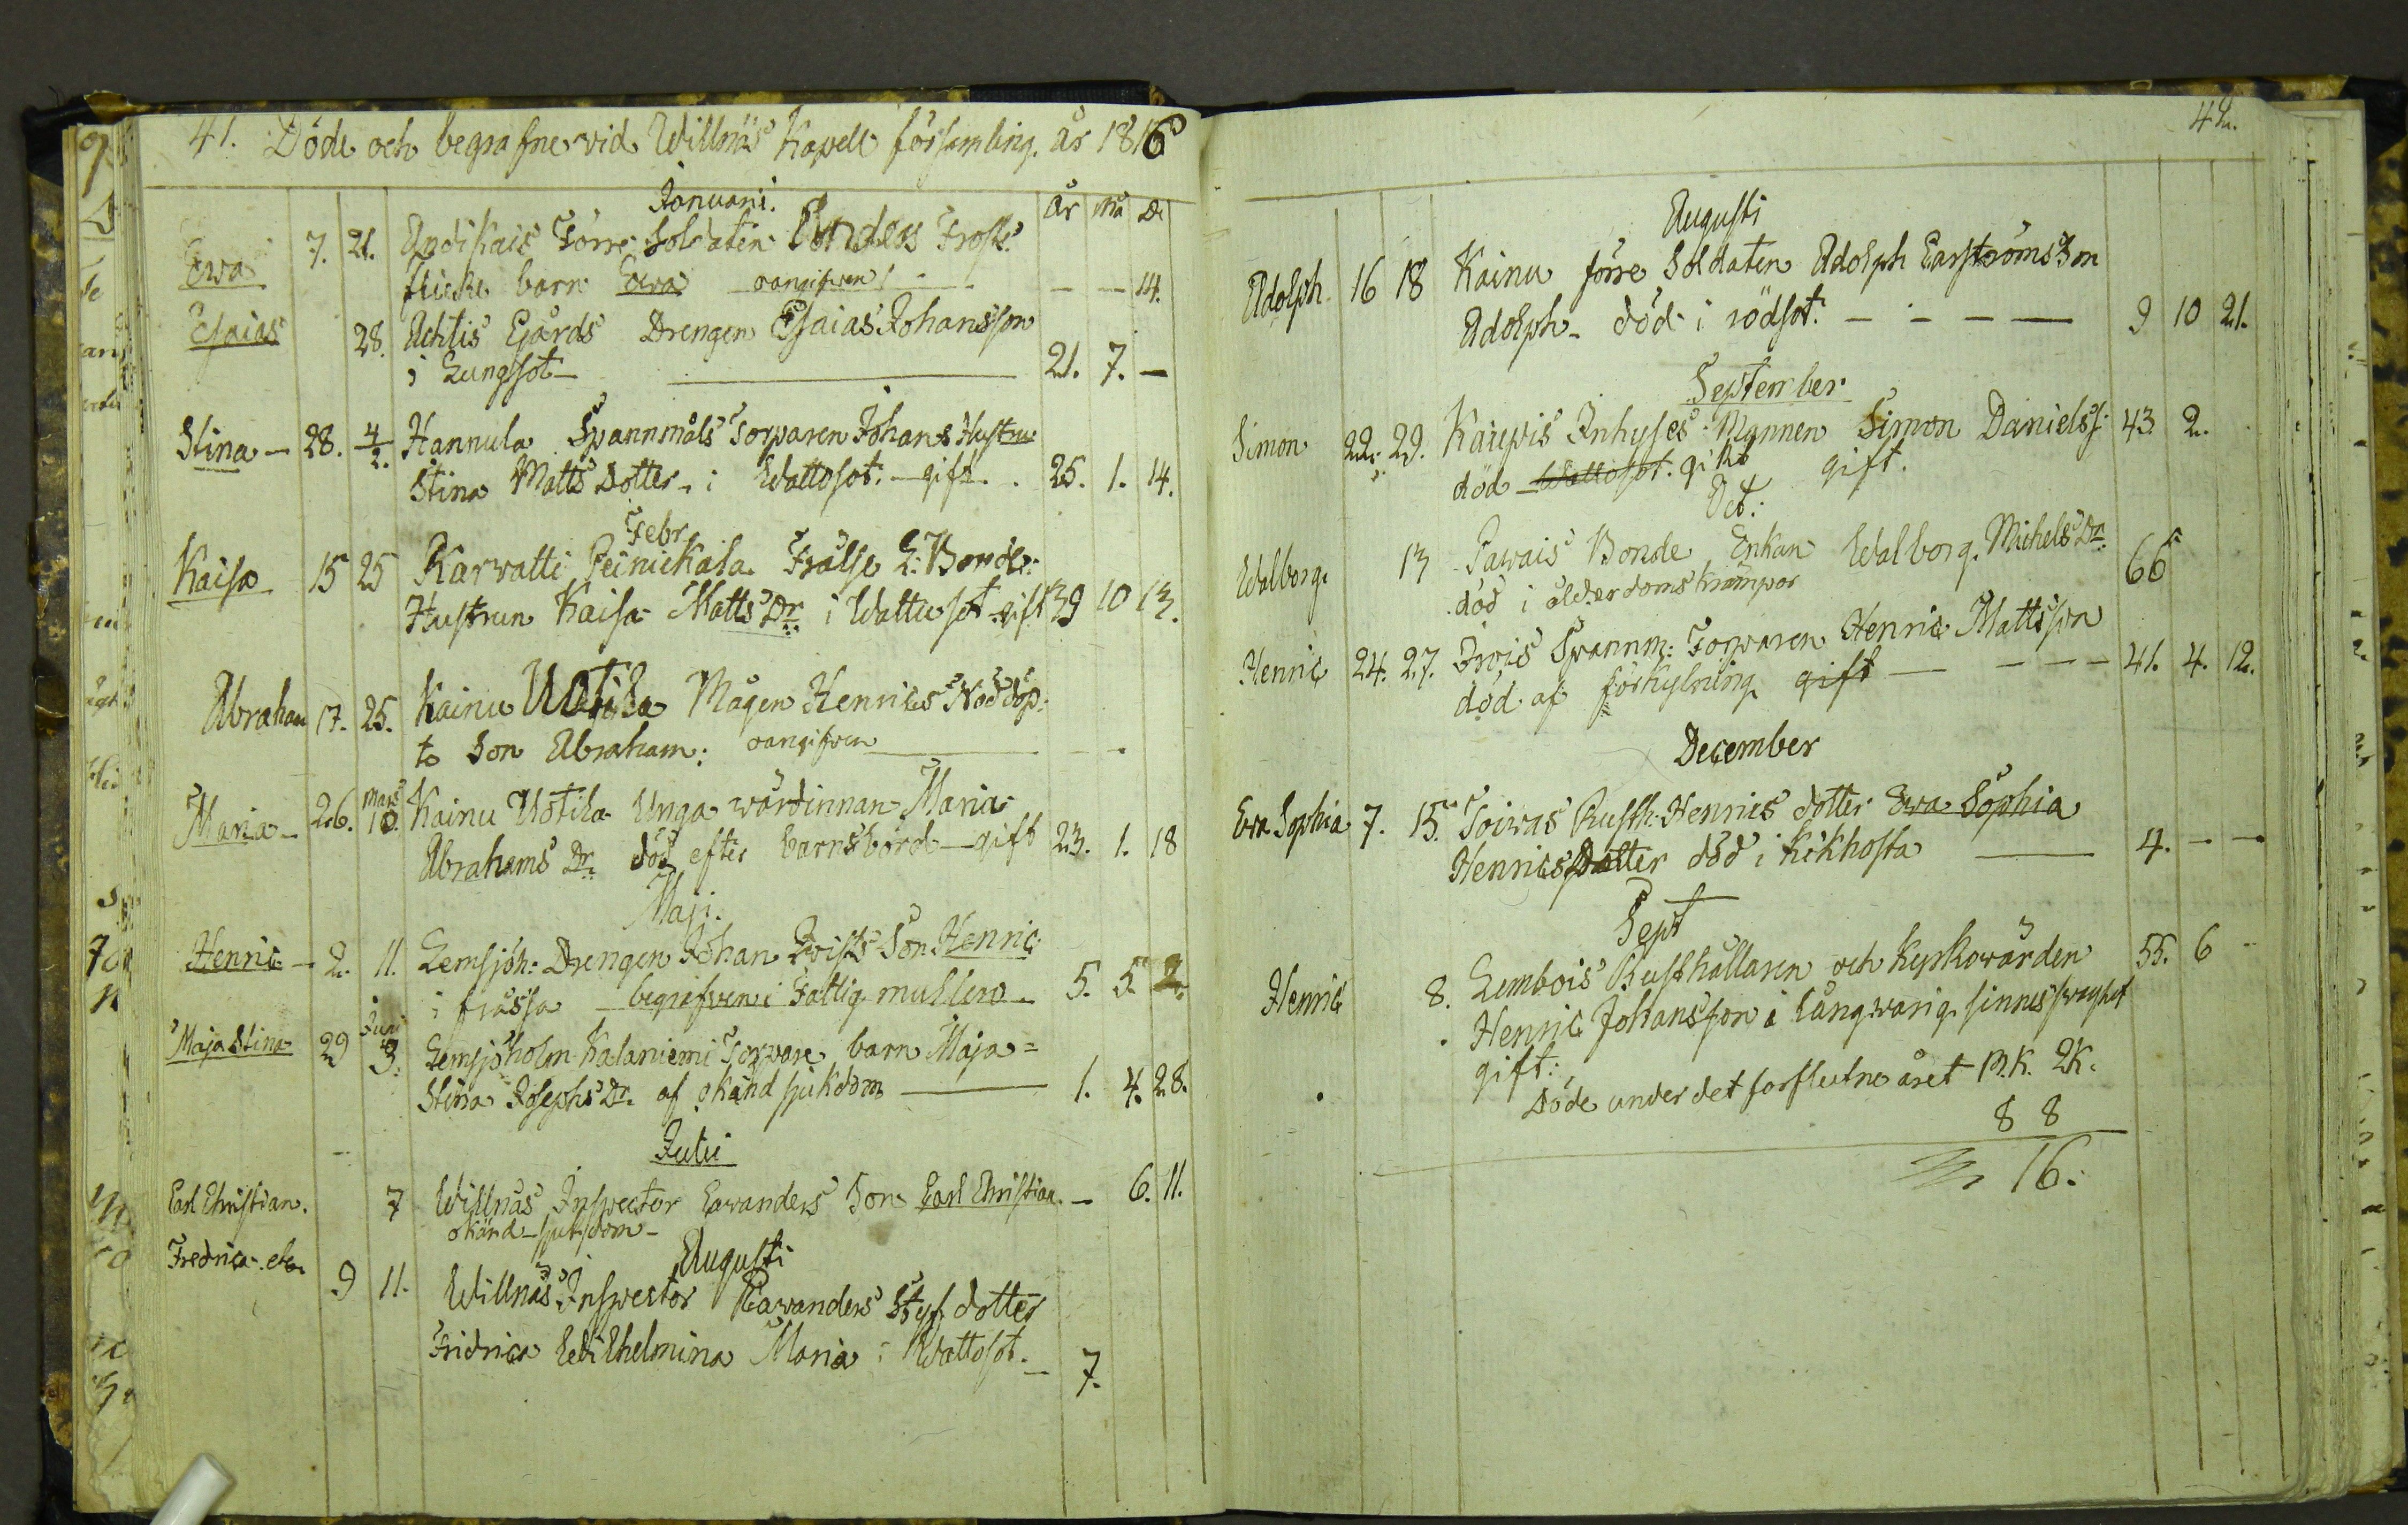 41. Döde och begrafne vid Willnäs Kapell församling. år 1816
Januari.
år må D.
Ewa 7. 21. Andikais Förre Soldaten Andeas Frosk
flicke barn Ewa oangifven - - 14.
Esaias 28. Achtis Gjärds Drengen Esaias Johansson
i Lungsot 21. 7. -
Stina - 28. 4/2. Hannula Spannmåls Torparen Johans Hustru
Stina Matts Dotter i Wattosot. gift. 25. 1. 14.
Febr
Kaisa 15 25 Karvatti Peiniekala Frälse L. Bonde
Hustrun Kaisa Matts Dr. i Wattusot gift 39 10 13.
Abraham 17. 25. Kainu Uotila Mågen Henrics Nöd döp-
to Son Abraham: oangifven
Mars
Maria - 26. 10. Kainu Uotila Unga wärdinnan Maria
Abrahams Dr. död efter barnsbörd - gift 23. 1. 18
Maji.
Henric - 2. 11. Lemsjöh: Drengen Johan Qvists Son Henric
i frässa begrafven i Fattig mullero 5. 5. 2.
Juni
Maja Stina 29 3. Lemsjöholm Kalaniemi Torpare barn Maja=
Stina Josephs Dr. af okänd sjukdom 1. 4. 28.
Julii
Carl Christian. 7 Willnäs Inspector Ewanders Son Carl Christian. - 6. 11.
okänd sjukdom -
Augusti
Fredrica etc. 9 11. Willnäs Inspector Eavanders Styf dotter
Fridrica Wilhelmina Maria i Wattosot. - 7.
42.
Augusti
Adolph. 16 18 Kainu förre Soldaten Adolph Earströms Son
Adolph - död i rödsot. - - - - 9 10 21.
September
Simon 22. 29. Kaiepis Inhyses Mannen Simon Danielss: 43 2.
död Wattosot. gikt gift.
Oct.
Walborg. 13 Pawais Bonde Enkan Walborg. Michels Dr.
död i ålderdoms krämpor 66
Henric 24. 27. Irvis Spannm: Torparen Henric Mattsson
död af förkylning gift - - - - 41. 4. 12.
December
Eva Sophia 7. 15. Toivas Rusth: Henrics dotter Ewa Sophia
Henrics Dotter död i kikhosta 4. - -
Sept
Henric 8. Lembois Rusthållaren och Kyrkowärden 55. 6 -
Henric Johansson i långwarig sinnessvaghet
gift.
Döde under det forflutne året M.K. QK.
8 8
16.